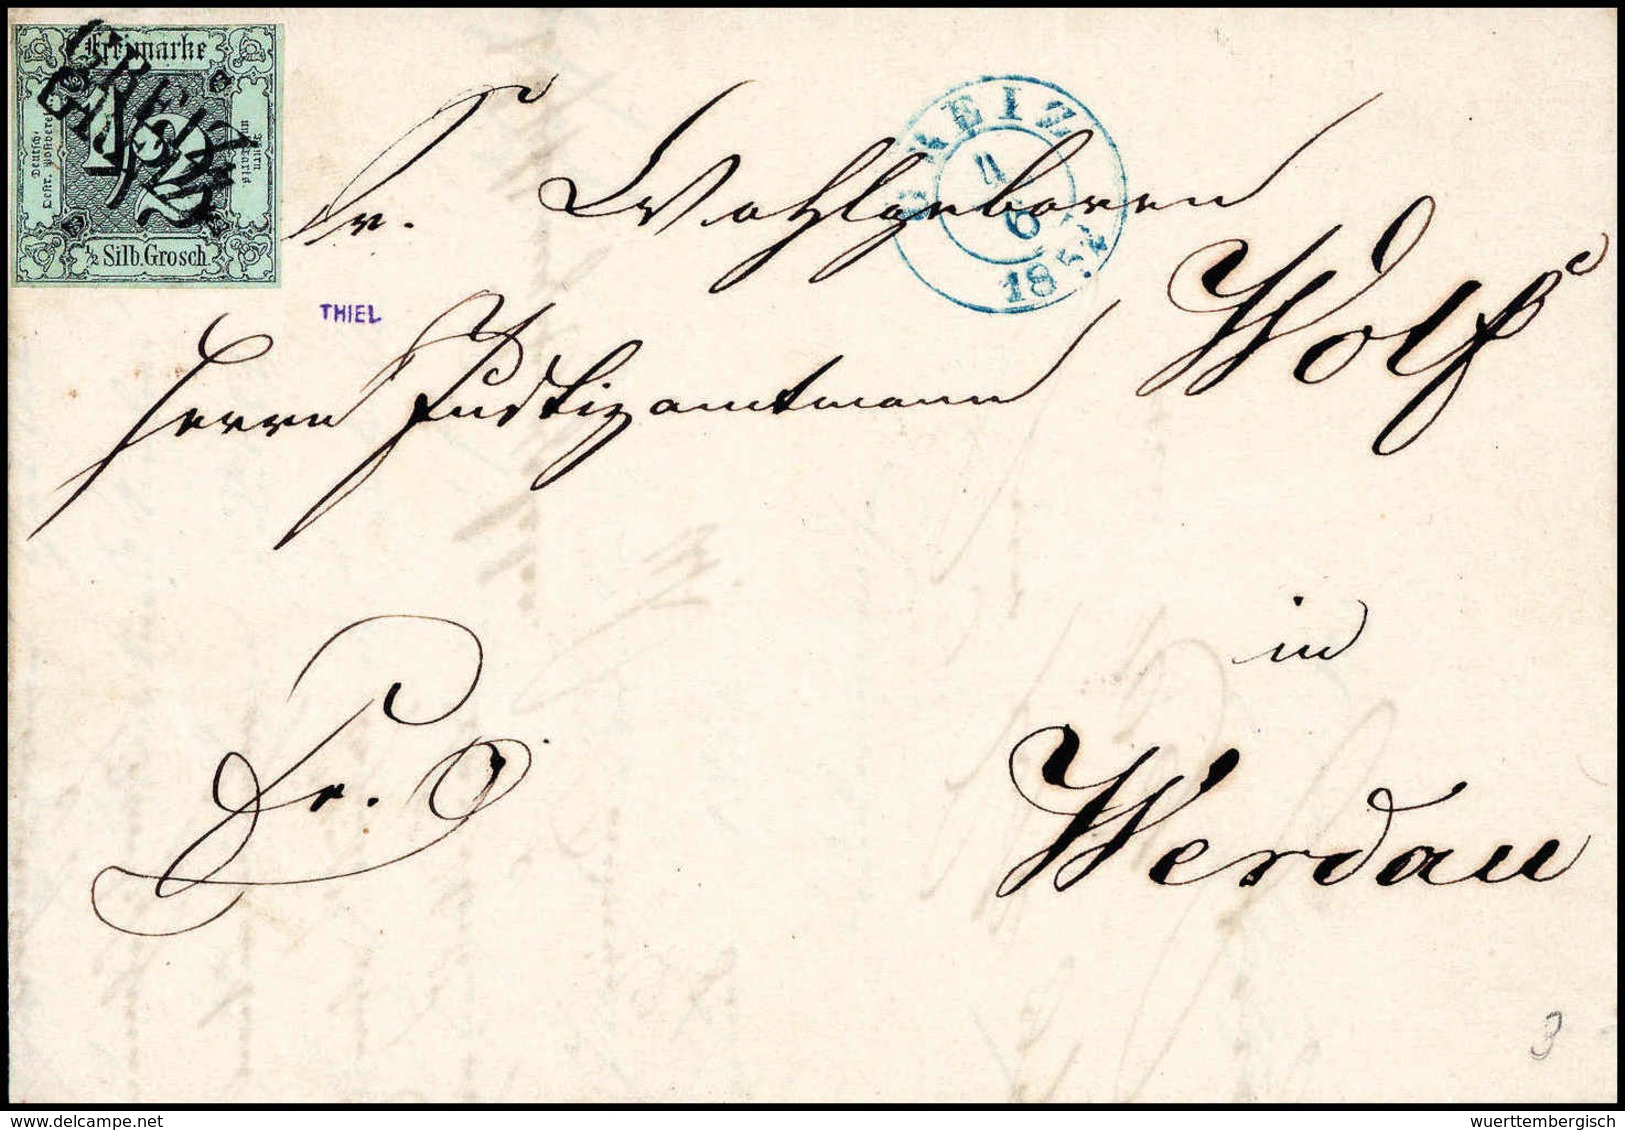 Freimarke
Deutsch-
Oestr. Postverein
½ Silb. Grosch
GREIZ
THIEL
GREIZ
4
6
185
Sr. Wohlgeboren
Herrn Justizamtmann Wolf
in
Fr.
Werdau
3
delcampe.net
wuerttembergisch